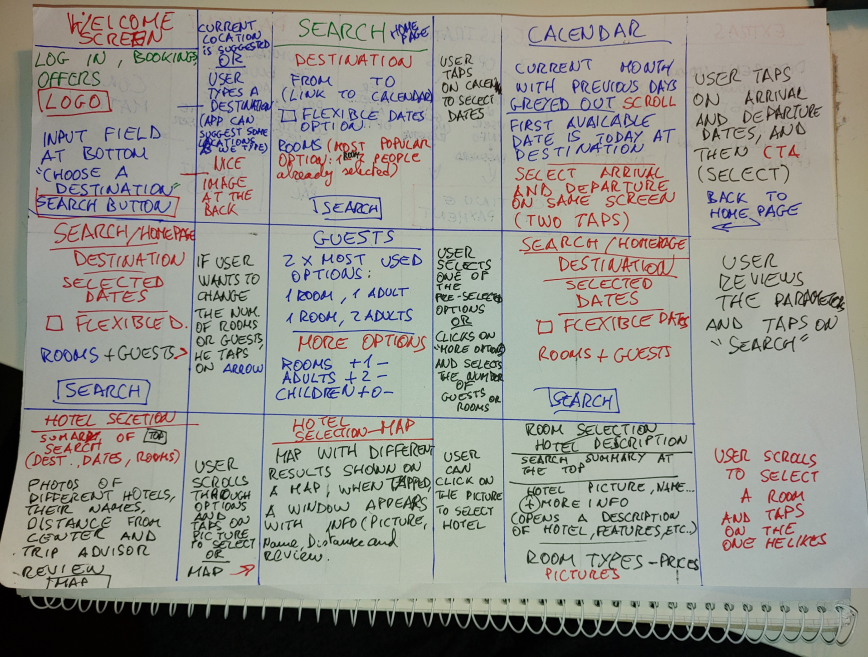 WELCOME
SCREEN
LOG IN, BOOKING,
OFFERS
LOGO
INPUT FIELD
AT BOTTOM
"CHOOSE A
DESTINATION"
SEARCH BUTTON
CURRENT
LOCATION
IS SUGGESTED
OR
USER
TYPES A
DESTINATION
(APP CAN
SUGGEST SOME
LOCATIONS
AS WE TYPE)
NICE
IMAGE
AT THE
BACK
SEARCH HOME
PAGE
DESTINATION
FROM TO
(LINK TO CALENDAR)
FLEXIBLE DATES
OPTION
ROOMS (MOST POPULAR
OPTION: 1 ROOM, 2 PEOPLE
already selected)
SEARCH
USER
TAPS
ON CALENDAR
TO SELECT
DATES
CALENDAR
CURRENT MONTH
WITH PREVIOUS DAYS
GREYED OUT SCROLL
FIRST AVAILABLE
DATE IS TODAY AT
DESTINATION
SELECT ARRIVAL
AND DEPARTURE
ON SAME SCREEN
(TWO TAPS)
USER TAPS
ON ARRIVAL
AND DEPARTURE
DATES, AND
THEN CTA
(SELECT)
BACK TO
HOME PAGE
SEARCH/HOMEPAGE
DESTINATION
SELECTED
DATES
FLEXIBLE D.
ROOMS + GUESTS >
SEARCH
IF USER
WANTS TO
CHANGE
THE NUM.
OF ROOMS
OR GUESTS,
HE TAPS
ON ARROW
GUESTS
2 x MOST USED
OPTIONS:
1 ROOM, 1 ADULT
1 ROOM, 2 ADULTS
MORE OPTIONS
ROOMS +1-
ADULTS +2-
CHILDREN +0-
USER
SELECTS
ONE OF
THE
PRE-SELECTED
OPTIONS
OR
CLICKS ON
"MORE OPTIONS"
AND SELECTS
THE NUMBER
OF
GUESTS OR
ROOMS
SEARCH/HOMEPAGE
DESTINATION
SELECTED
DATES
FLEXIBLE DATES
ROOMS + GUESTS
SEARCH
USER
REVIEWS
THE PARAMETERS
AND TAPS ON
"SEARCH"
HOTEL SELETION
SUMARY OF TOP
SEARCH
(DEST., DATES, ROOMS)
PHOTOS OF
DIFFERENT HOTELS,
THEIR NAMES,
DISTANCE FROM
CENTER AND
TRIP ADVISOR
REVIEW
MAP
USER
SCROLLS
THROUGH
OPTIONS
AND
TAPS ON
PICTURE
TO SELECT
OR
MAP →
HOTEL
SELECTION-MAP
MAP WITH DIFFERENT
RESULTS SHOWN ON
A MAP, WHEN TAPPED,
A WINDOW APPEARS
WITH INFO (PICTURE,
Name, Distance and
Review.
USER
CAN
CLICK ON
THE PICTURE
TO SELECT
HOTEL
ROOM SELECTION
HOTEL DESCRIPTION
SEARCH SUMMARY AT
THE TOP
HOTEL PICTURE, NAME...
(+) MORE INFO
(OPENS A DESCRIPTION
OF HOTEL, FEATURES, ETC..)
ROOM TYPES - PRICES
PICTURES
USER SCROLLS
TO SELECT
A ROOM
AND TAPS
ON THE
ONE HE LIKES